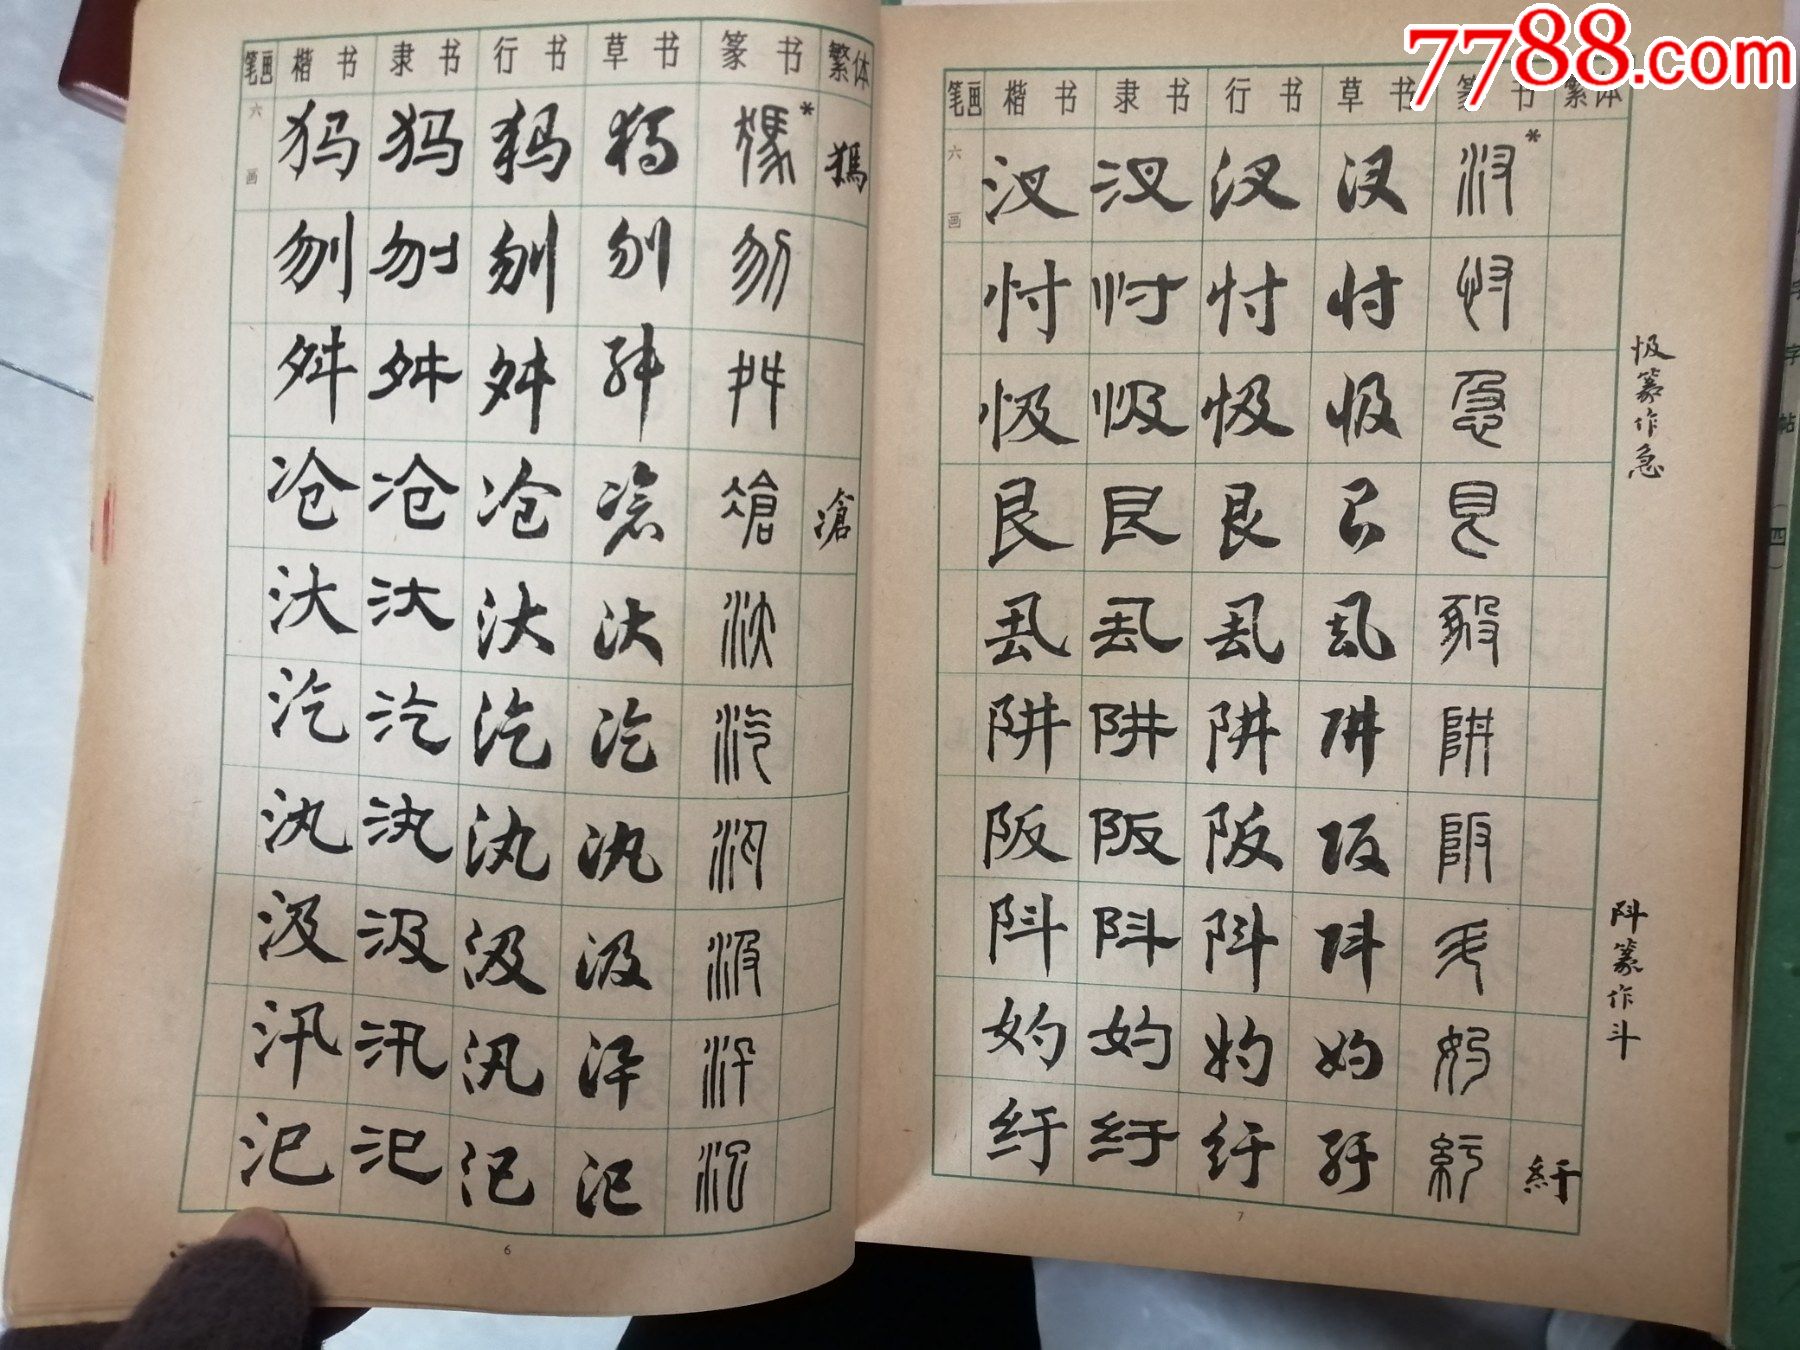 7788.com
笔画 楷书 隶书 行书 草书 篆书 繁体
六画
犸 犸 犸 犸 犸* 獁
刎 刎 刎 刎 刎
舛 舛 舛 舛 舛
冱
沧 沧 沧 沧 滄
汏 汏 汏 汏 汏
汔 汔 汔 汔 汔
汍 汍 汍 汍 汍
汲 汲 汲 汲 汲
汛 汛 汛 汛 汛
汜 汜 汜 汜 汜
6
笔画 楷书 隶书 行书 草书 篆书 繁体
六画
汊 汊 汊 汊 汊*
忖 忖 忖 忖 忖
忣 忣 忣 忣 急
艮 艮 艮 艮 艮
厾 厾 厾 厾
阱 阱 阱 阱 阱
阪 阪 阪 阪 阪
阧 阧 阧 阧 斗
妁 妁 妁 妁 妁
纡 纡 纡 纡 紆 紆
7
忣篆作急
阧篆作斗
字
字
帖
四